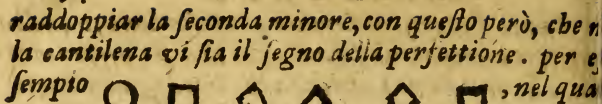 raddoppiar la ſeconda minore, con queſto però, che n
la cantilena vi ſia il ſegno della perfettione. per eſ
ſempio , nel qua